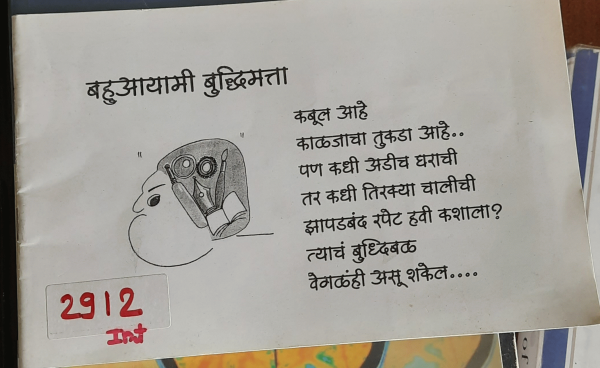 बहुआयामी बुद्धिमत्ता
कबूल आहे
काळजाचा तुकडा आहे..
पण कधी अडीच घराची
तर कधी तिरक्या चालीची
झापडबंद रपेट हवी कशाला?
त्याचं बुध्दिबळ
वेगळंही असू शकेल....
2912
Int